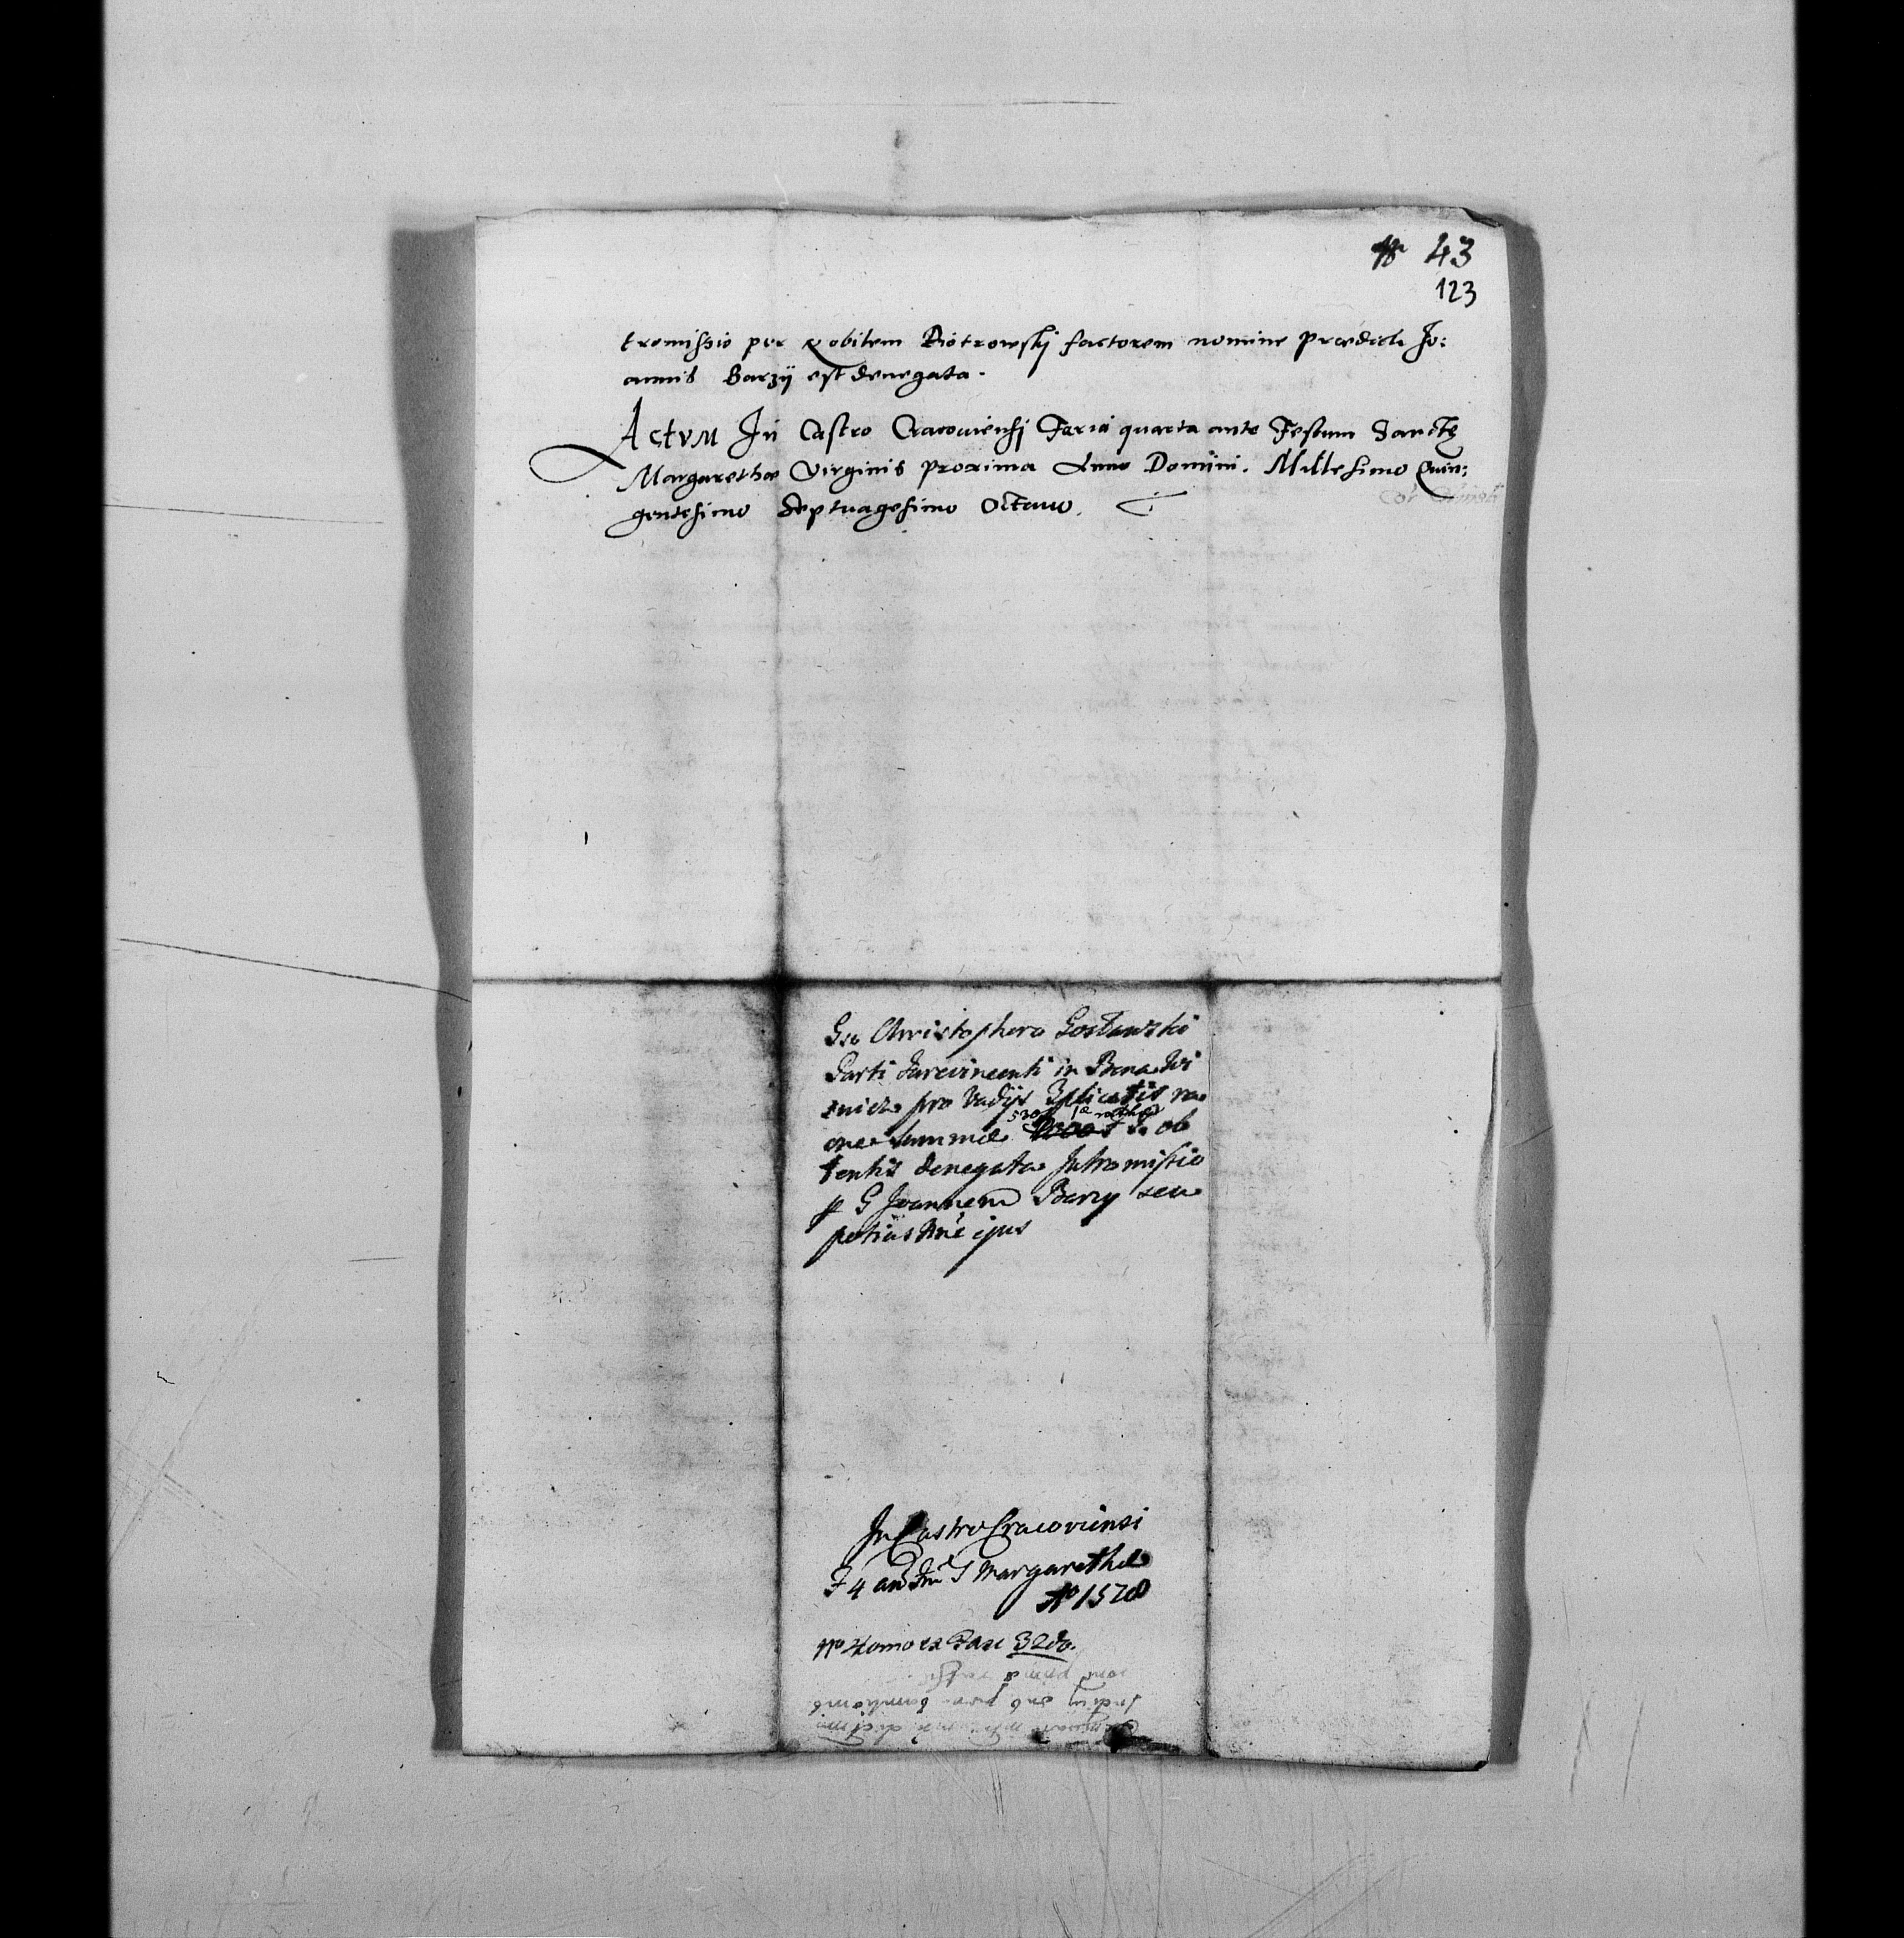 43
123
tromissio per Nobilem Piotrowskj factorem nomine prædicti Jo:
annis Barzÿ est denegata.
Actum In Castro Cracouiensj Feria quarta ante Festum Sanctę
Margarethæ Virginis proxima Anno Domini. Millesimo Quin:
gentesimo Septuagesimo Octauo.
Gso Christophero Gostawski
Parti Jurevincenti in Bona Wi
pro Vadijs Zplicatis ra
one summæ ob
tentis denegata Intromissio
p G Joannem Barzy seu
potius Nne ejus
In Castro Cracoviensi
F 4 an Ftm S Margarethæ
Aº 1578
Nº Homo ex Fase 32do.